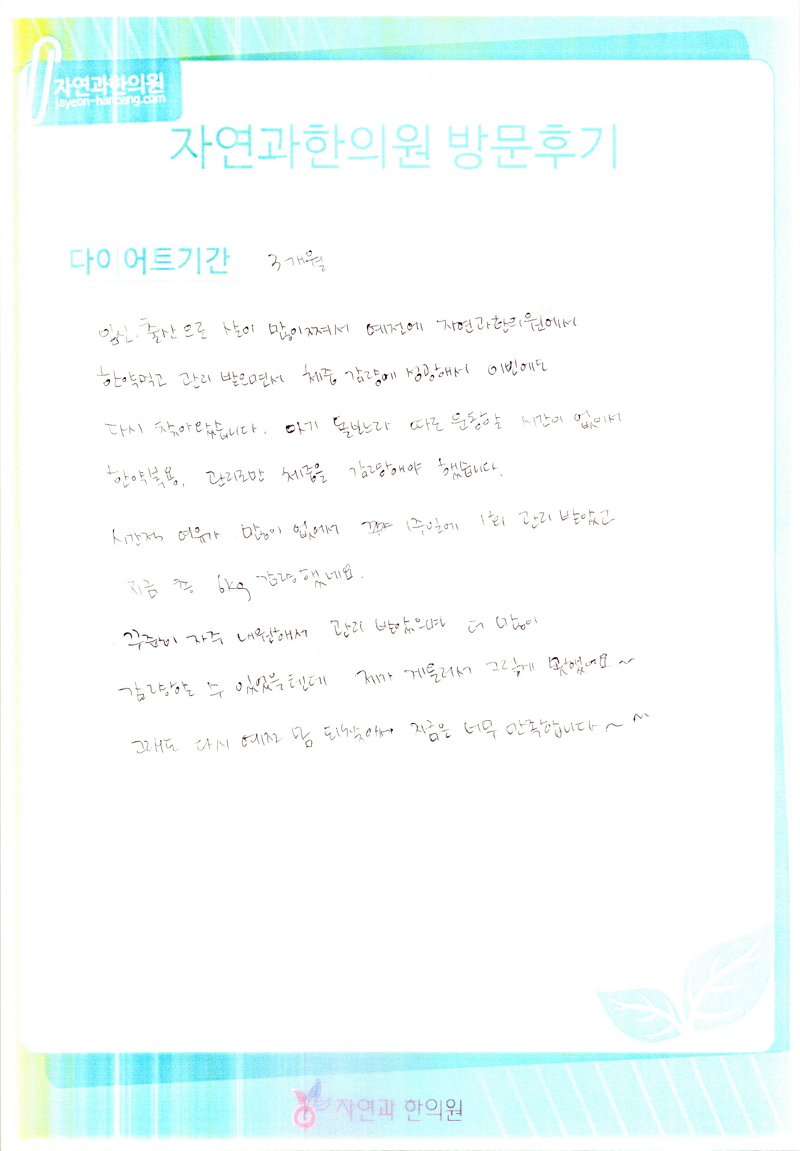 자연과한의원
jayeon-hanbang.com
자연과한의원 방문후기
다이어트기간 3개월
임신.출산으로 살이 많이쪄서 예전에 자연과한의원에서
한약먹고 관리 받으면서 체중 감량에 성공해서 이번에도
다시 찾아왔습니다. 아기 돌보느라 따로 운동할 시간이 없어서
한약복용, 관리로만 체중을 감량해야 했습니다.
시간적 여유가 많이 없어서 1주일에 1회 관리 받았고
지금 총 6kg 감량했네요.
꾸준히 자주 내원해서 관리 받았으면 더 많이
감량할 수 있었을텐데 제가 게을러서 그렇게 못했네요~
그래도 다시 예전 몸 되찾아서 지금은 너무 만족합니다~~
자연과 한의원